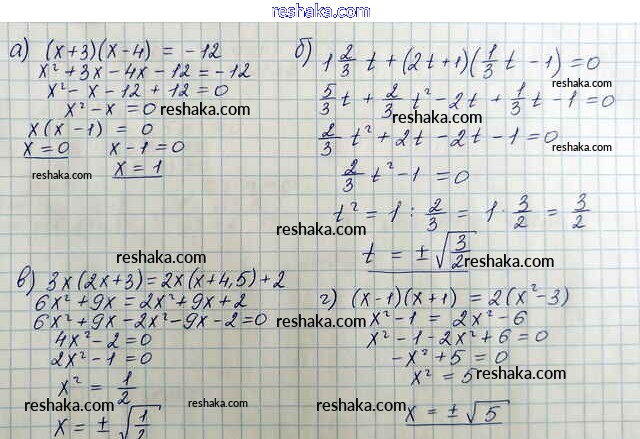 reshaka.com
а) (x+3)(x-4) = -12
x² + 3x - 4x - 12 = -12
x² - x - 12 + 12 = 0
x² - x = 0
reshaka.com
x(x-1) = 0
x = 0 x - 1 = 0
reshaka.com
x = 1
б) 1 2/3 t + (2t+1)(1/3 t - 1) = 0
5/3 t + 2/3 t² - 2t + 1/3 t - 1 = 0
reshaka.com
2/3 t² + 2t - 2t - 1 = 0
reshaka.com
2/3 t² - 1 = 0
reshaka.com
t² = 1 : 2/3 = 1 · 3/2 = 3/2
reshaka.com
t = ±√3/2
reshaka.com
reshaka.com
в) 3x(2x+3) = 2x(x+4,5)+2
6x² + 9x = 2x² + 9x + 2
6x² + 9x - 2x² - 9x - 2 = 0
reshaka.com
4x² - 2 = 0
2x² - 1 = 0
x² = 1/2
reshaka.com
reshaka.com
x = ±√1/2
г) (x-1)(x+1) = 2(x²-3)
reshaka.com
x² - 1 = 2x² - 6
x² - 1 - 2x² + 6 = 0
-x² + 5 = 0
reshaka.com
x² = 5
reshaka.com
x = ±√5
reshaka.com